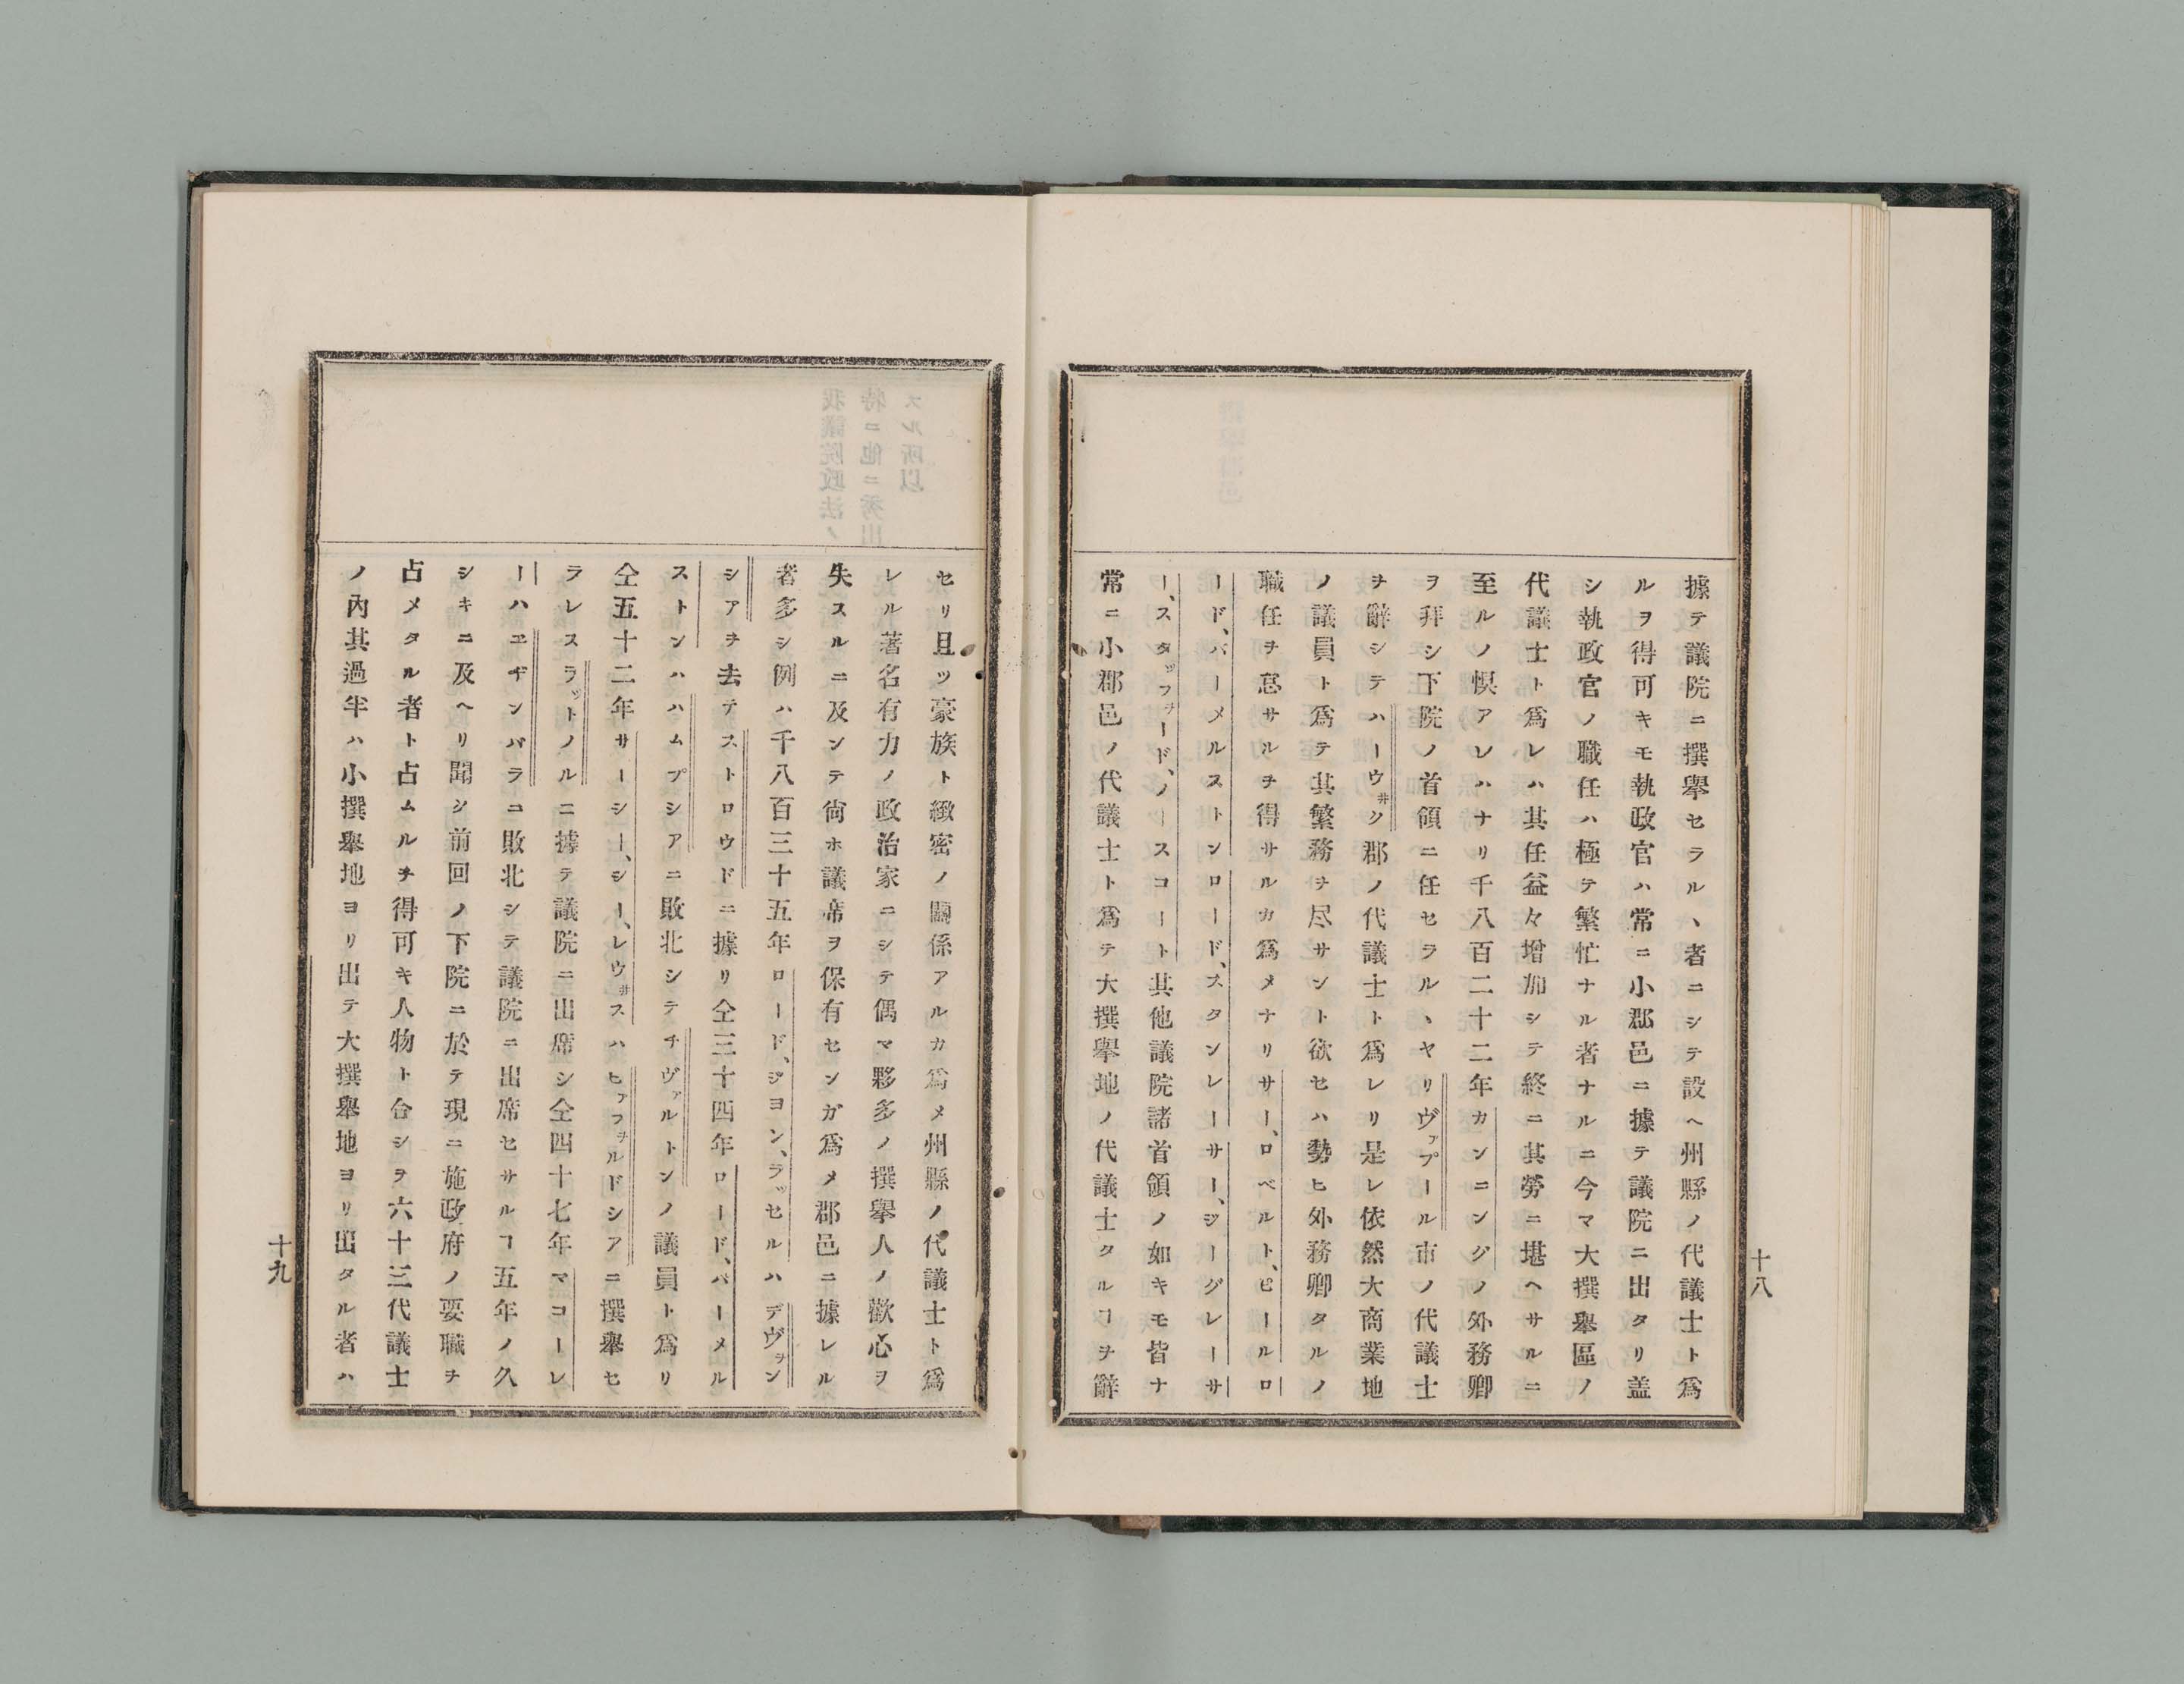 據テ議院ニ撰擧セラル、者ニシテ設ヘ州縣ノ代議士ト爲
ルヲ得可キモ執政官ハ常ニ小郡邑ニ據テ議院ニ出タリ盖
シ執政官ノ職任ハ極テ繁忙ナル者ナルニ今マ大撰擧區ノ
代議士ト爲レハ其任益々增加シテ終ニ其勞ニ堪ヘサルニ
至ルノ惧アレハナリ千八百二十二年カンニングノ外務卿
ヲ拜シ下院ノ首領ニ任セラル、ヤリヴァプール市ノ代議士
ヲ辭シテハーウ井ク郡ノ代議士ト爲レリ是レ依然大商業地
ノ議員ト爲テ其繁務ヲ尽サント欲セハ勢ヒ外務卿タルノ
職任ヲ怠サルヲ得サルカ爲メナリサー、ロベルト、ピールロ
ード、パーメルストンロード、スタンレーサー、ジーグレーサ
ー、スタッフヲード、ノースコート其他議院諸首領ノ如キモ皆ナ
常ニ小郡邑ノ代議士ト爲テ大撰擧地ノ代議士タルヿヲ辭
十八
セリ且ツ豪族ト緻密ノ關係アルカ爲メ州縣ノ代議士ト爲
レル著名有力ノ政治家ニシテ偶マ夥多ノ撰擧人ノ歡心ヲ
失スルニ及ンテ尙ホ議席ヲ保有センガ爲メ郡邑ニ據レル
者多シ例ハ千八百三十五年ロード、ジヨン、ラッセルハデヴヲン
シアヲ去テストロウドニ據リ仝三十四年ロード、パーメル
ストンハハムプシアニ敗北シテチヴァルトンノ議員ト爲リ
仝五十二年サーシー、シー、レウ井スハヒァフヲルドシアニ撰擧セ
ラレスラットノルニ據テ議院ニ出席シ仝四十七年マコーレ
ーハヱヂンバラニ敗北シテ議院ニ出席セサルヿ五年ノ久
シキニ及ヘリ聞シ前回ノ下院ニ於テ現ニ施政府ノ要職ヲ
占メタル者ト占ムルヲ得可キ人物ト合シヲ六十三代議士
ノ內其過半ハ小撰擧地ヨリ出テ大撰擧地ヨリ出タル者ハ
十九